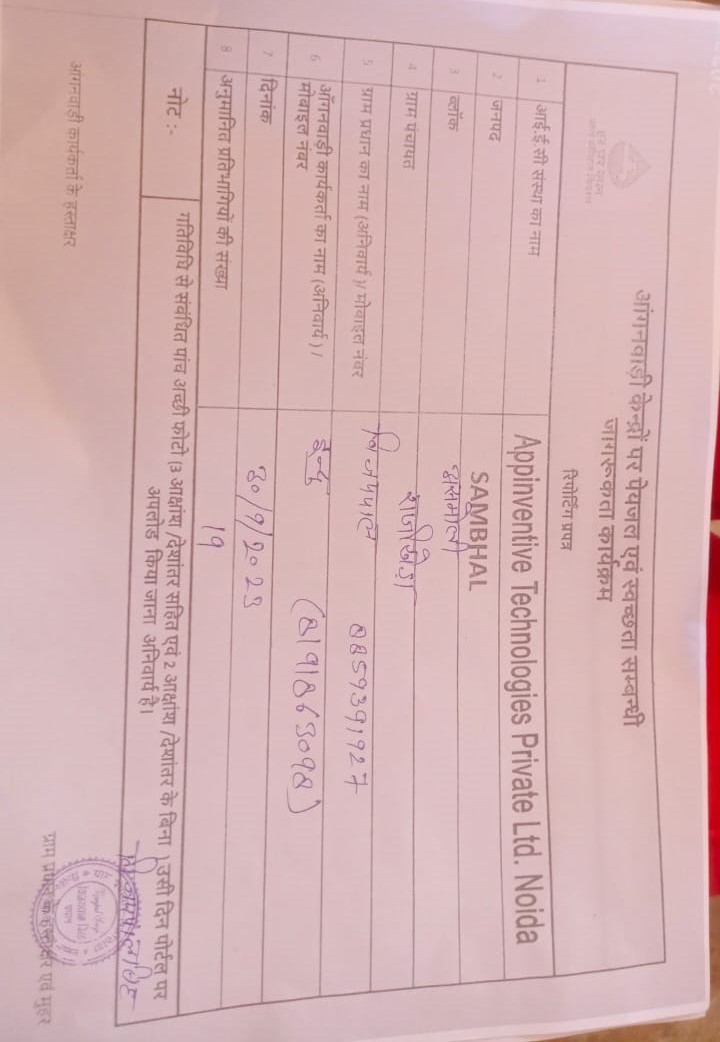 हर घर जल
जल जीवन मिशन
आंगनवाड़ी केन्द्रों पर पेयजल एवं स्वच्छता सम्बन्धी
जागरूकता कार्यक्रम
रिपोर्टिंग प्रपत्र
1 आई.ई.सी संस्था का नाम Appinventive Technologies Private Ltd. Noida
2 जनपद SAMBHAL
3 ब्लॉक असमोली
4 ग्राम पंचायत
5 ग्राम प्रधान का नाम (अनिवार्य)/ मोबाइल नंबर विजयपाल 8859391927
6 ऑगनवाड़ी कार्यकर्ता का नाम (अनिवार्य) /
मोबाइल नंबर इन्दु
7 दिनांक 30/9/2023
8 अनुमानित प्रतिभागियों की संख्या 19
नोट :- गतिविधि से संबंधित पांच अच्छी फोटो (3 आक्षांश /देशांतर सहित एवं 2 आक्षांश /देशांतर के बिना ) उसी दिन पोर्टल पर
अपलोड किया जाना अनिवार्य है।
आंगनवाड़ी कार्यकर्ता के हस्ताक्षर ग्राम प्रधान के हस्ताक्षर एवं मुहर